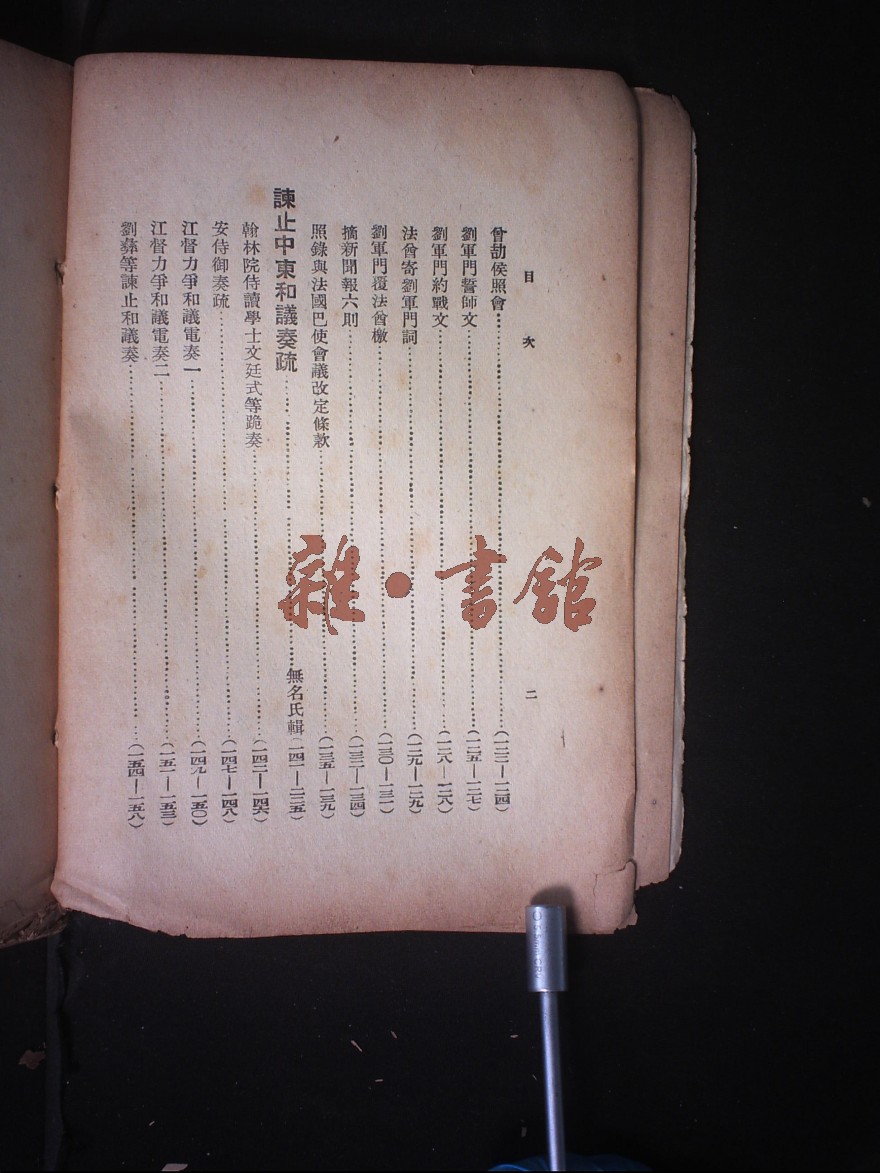 目次
二
曾劼侯照會……(一二二—一二四)
劉軍門誓師文……(一二五—一二七)
劉軍門約戰文……(一二八—一二八)
法酋寄劉軍門詞……(一二九—一二九)
劉軍門覆法酋檄……(一三〇—一三一)
摘新聞報六則……(一三二—一三四)
照錄與法國巴使會議改定條款……(一三五—一三九)
諫止中東和議奏疏……無名氏輯(一四一—二三五)
翰林院侍讀學士文廷式等跪奏……(一四二—一四六)
安侍御奏疏……(一四七—一四八)
江督力爭和議電奏一……(一四九—一五〇)
江督力爭和議電奏二……(一五一—一五三)
劉彝等諫止和議奏……(一五四—一五八)
雜·書館